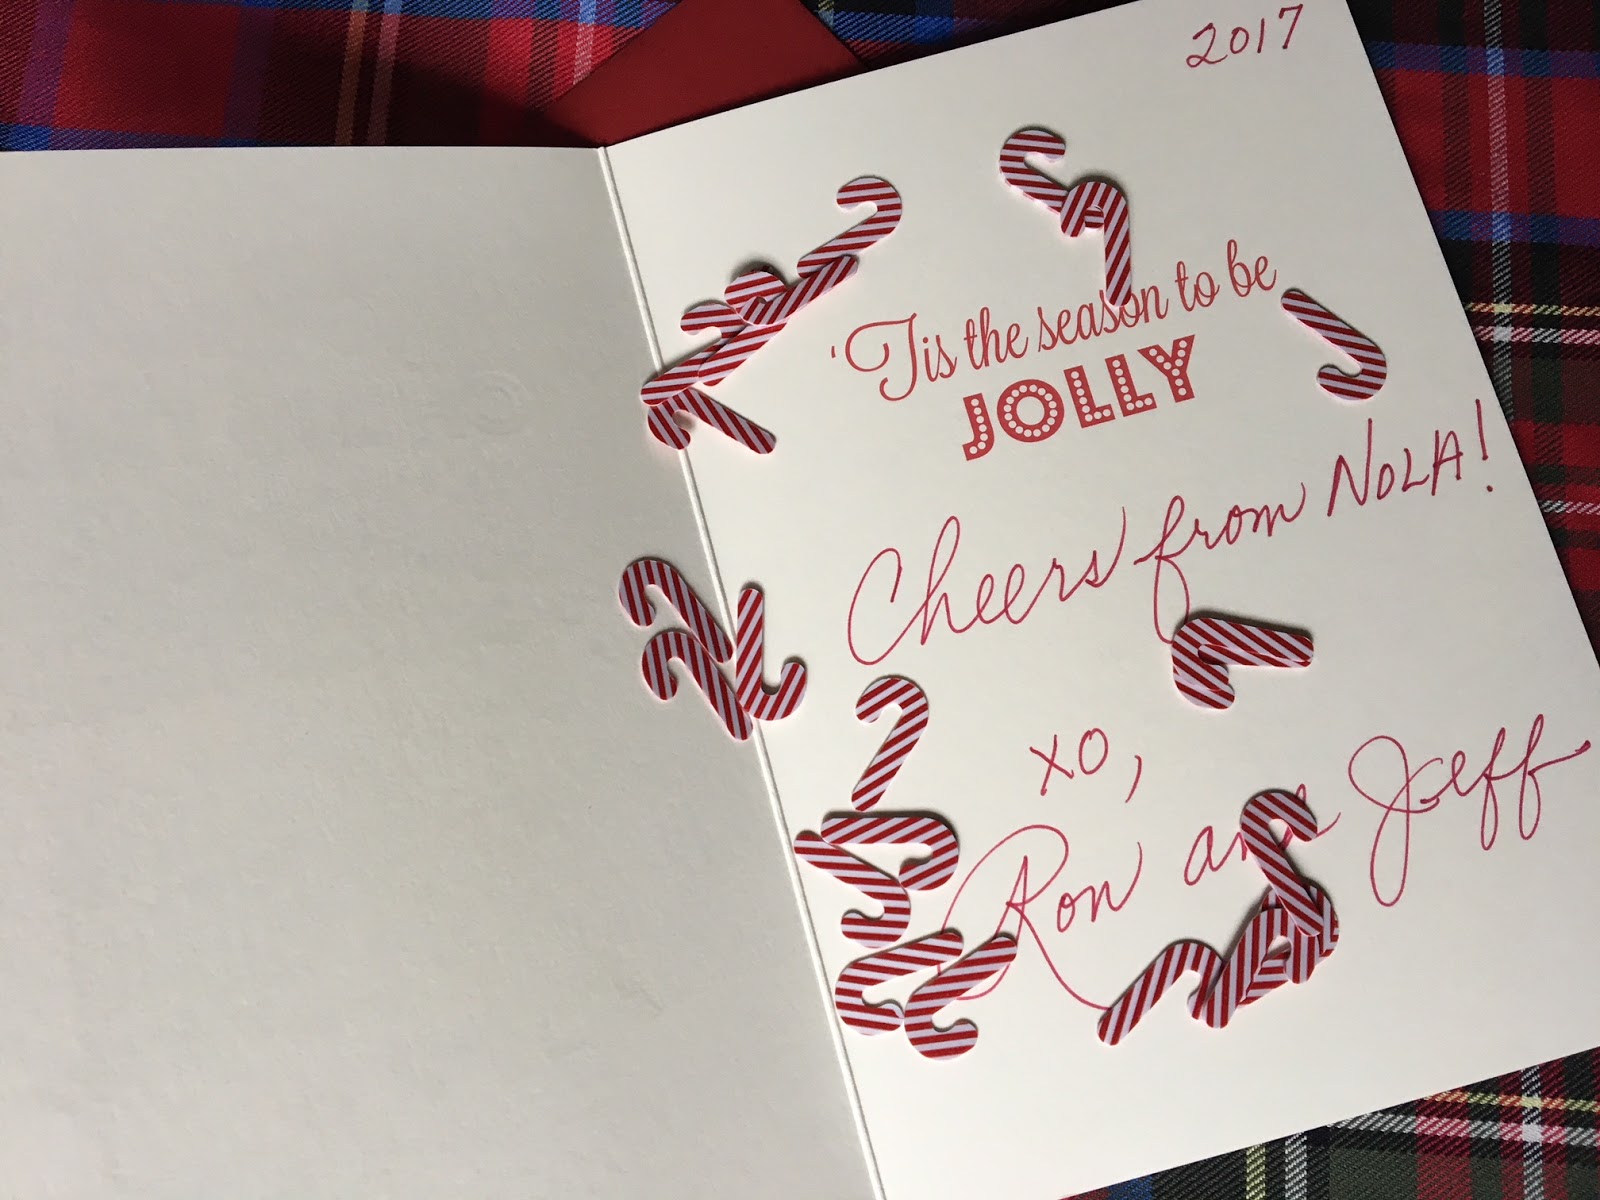 2017
'Tis the season to be
JOLLY
Cheers from NOLA!
xo,
Ron and Joeff